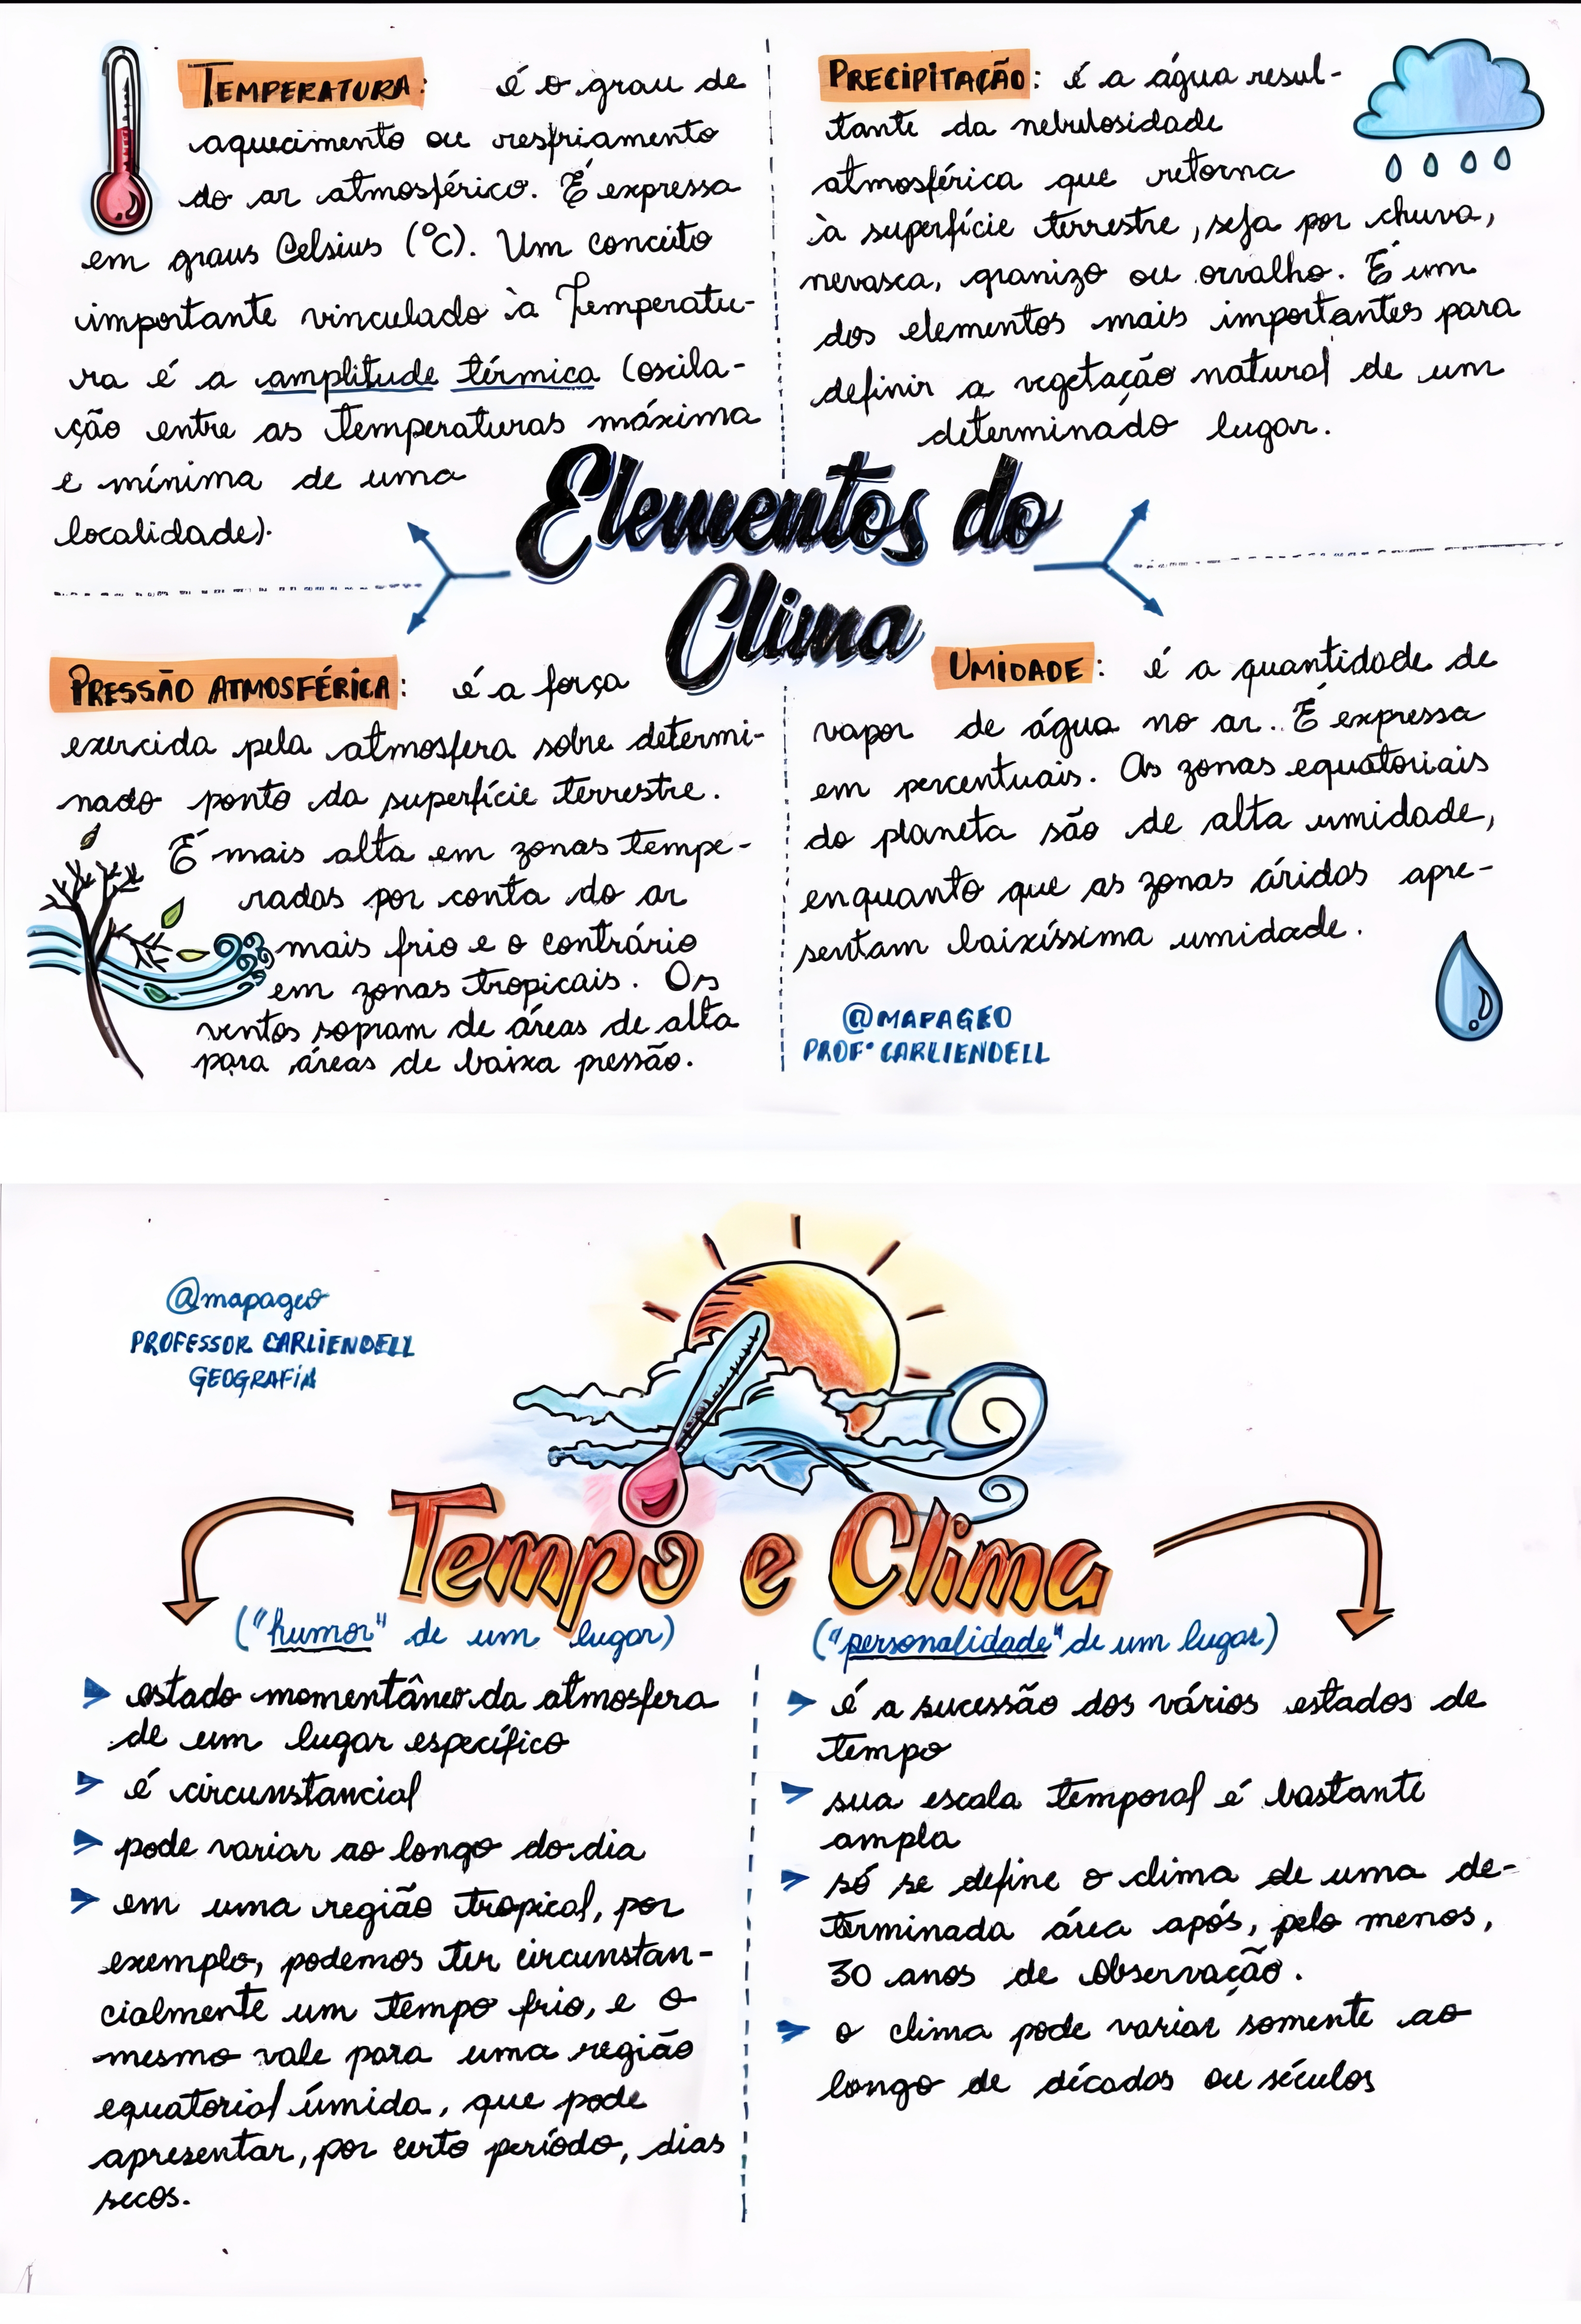 TEMPERATURA: é o grau de
aquecimento ou resfriamento
do ar atmosférico. É expressa
em graus Celsius (°C). Um conceito
importante vinculado à Temperatu-
ra é a amplitude térmica (oscila-
ção entre as temperaturas máxima
e mínima de uma
localidade).
PRECIPITAÇÃO: é a água resul-
tante da nebulosidade
atmosférica que retorna
à superfície terrestre, seja por chuva,
nevasca, granizo ou orvalho. É um
dos elementos mais importantes para
definir a vegetação natural de um
determinado lugar.
Elementos do
Clima
PRESSÃO ATMOSFÉRICA: é a força
exercida pela atmosfera sobre determi-
nado ponto da superfície terrestre.
É mais alta em zonas tempe-
radas por conta do ar
mais frio e o contrário
em zonas tropicais. Os
ventos sopram de áreas de alta
para áreas de baixa pressão.
UMIDADE: é a quantidade de
vapor de água no ar. É expressa
em percentuais. As zonas equatoriais
do planeta são de alta umidade,
enquanto que as zonas áridas apre-
sentam baixíssima umidade.
@MAPAGEO
PROF° CARLIENDELL
@mapageo
PROFESSOR CARLIENDELL
GEOGRAFIA
Tempo e Clima
("humor" de um lugar)
estado momentâneo da atmosfera
de um lugar específico
é circunstancial
pode variar ao longo do dia
em uma região tropical, por
exemplo, podemos ter circunstan-
cialmente um tempo frio, e o
mesmo vale para uma região
equatorial úmida, que pode
apresentar, por certo período, dias
secos.
("personalidade" de um lugar)
é a sucessão dos vários estados de
tempo
sua escala temporal é bastante
ampla
só se define o clima de uma de-
terminada área após, pelo menos,
30 anos de observação.
o clima pode variar somente ao
longo de décadas ou séculos